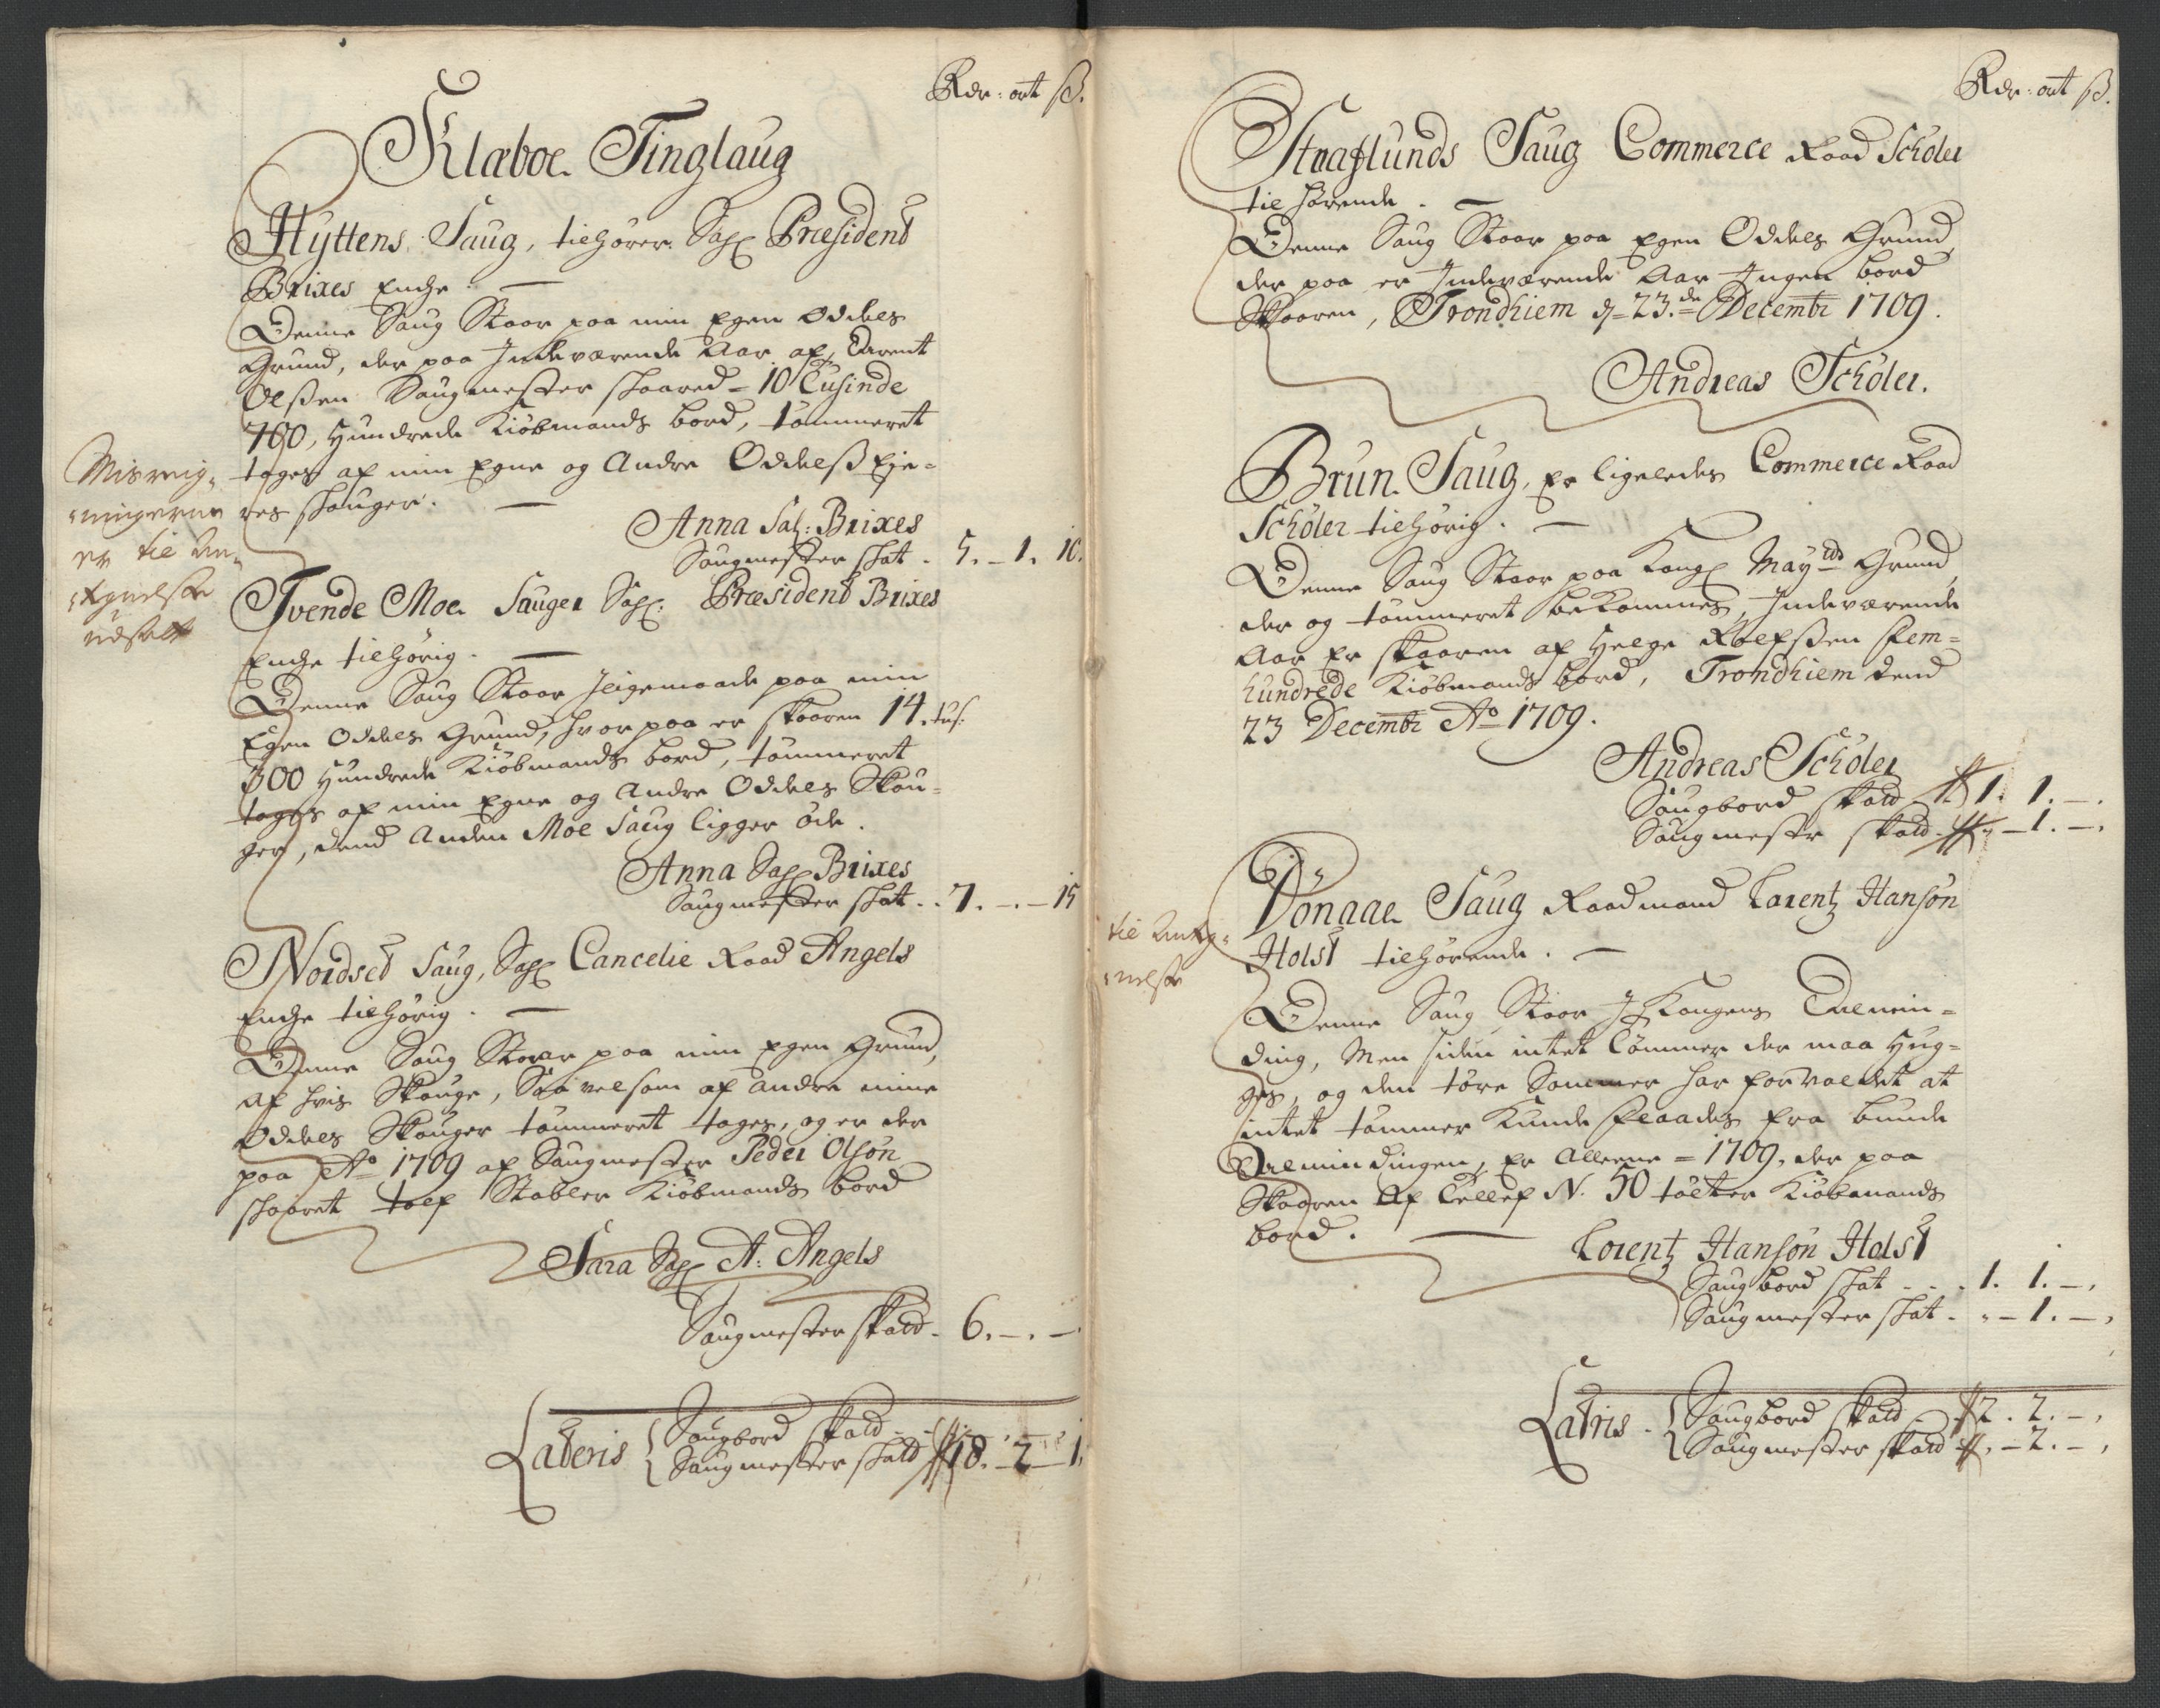 Rdr: ort ß.
Klæboe Tinglaug
Hyttens Saug, tilhører Sahl Præsident
Brixes Enche. —
Denne Saug Staar paa min Egen Oddels
Grund, der paa Indeværende Aar af Arent
Olßen Saugmester skaared = 10 Tusinde
700, Hundrede Kiøbmands bord, tømmeret
tages af min Egne og Andre Oddelß Eje=
res skouger. —
Anna Sal: Brixes
Saugmester skat . 5. – 1. 10.
Misreig-
ningerne
er til An-
tegnelse
udsatt
Tvende Moe Sauger Sahl: Præsident Brixes
Enche tilhørig. —
Denne Saug Staar Ligemaade paa min
Egen Oddels Grund, hvor paa er skaaren 14. tus:
300 Hundrede Kiøbmands bord, tømmeret
tages af min Egne og Andre Oddels Skou=
ger, dend Anden Moe Saug ligger øde.
Anna Sahl Brixes
Saugmester skat . . 7. – . – 15
Nordset Saug, Sahl Cancelie Raad Angels
Enche tilhørig. —
Denne Saug Staar paa min Egen Grund,
af hvis Skouge, Saa velsom af andre mine
Oddels Skouger tømmeret tages, og er der
paa Ao 1709 af Saugmester Peder Olson
skaaret tolf Stabler Kiøbmands bord
Sara Sahl A: Angels
Saugmester skatt . 6. – . –
Lateris Saugbord skatt – . –
Saugmester skatt 18. – 2 – 1.
Rdr: ort ß.
Straslunds Saug Commerce Raad Schøler
tilhørende. —
Denne Saug Staar paa Egen Oddels Grund,
der paa er Indeværende Aar Ingen bord
Skaaren, Trondhiem d. 23.de Decembr 1709.
Andreas Schøler.
Brun Saug, Er ligeledes Commerce Raad
Schøler tilhørig. —
Denne Saug Staar paa Kongl Mayts Grund,
der og tømmeret bekommes, Indeværende
Aar Er skaaren af Helge Rolfßen fem=
hundrede Kiøbmands bord, Trondhiem dend
23 Decembr Ao 1709.
Andreas Schøler
Saugbord skatt 1. 1. – .
Saugmestr skatt – 1. – .
til Anteg-
nelse
Vönaae Saug Raadmand Lorentz Hansøn
Holst tilhørende. —
Denne Saug Staar J Kongens Almin=
ding, Men siden intet Tømmer der maa Hug=
ges, og den tøre Sommer har forvoldet at
intet tømmer kunde flaades fra bunde
Almindingen, Er Alleene = 1709, der paa
Skaaren Af Tellef N. 50 tølter Kiøbmands
bord. —
Lorentz Hansøn Holst
Saugbord skat . . . 1. 1. – .
Saugmester skat . . – 1. – .
Latris . Saugbord skatt 2 . 2. – .
Saugmester skatt . – 2. – .